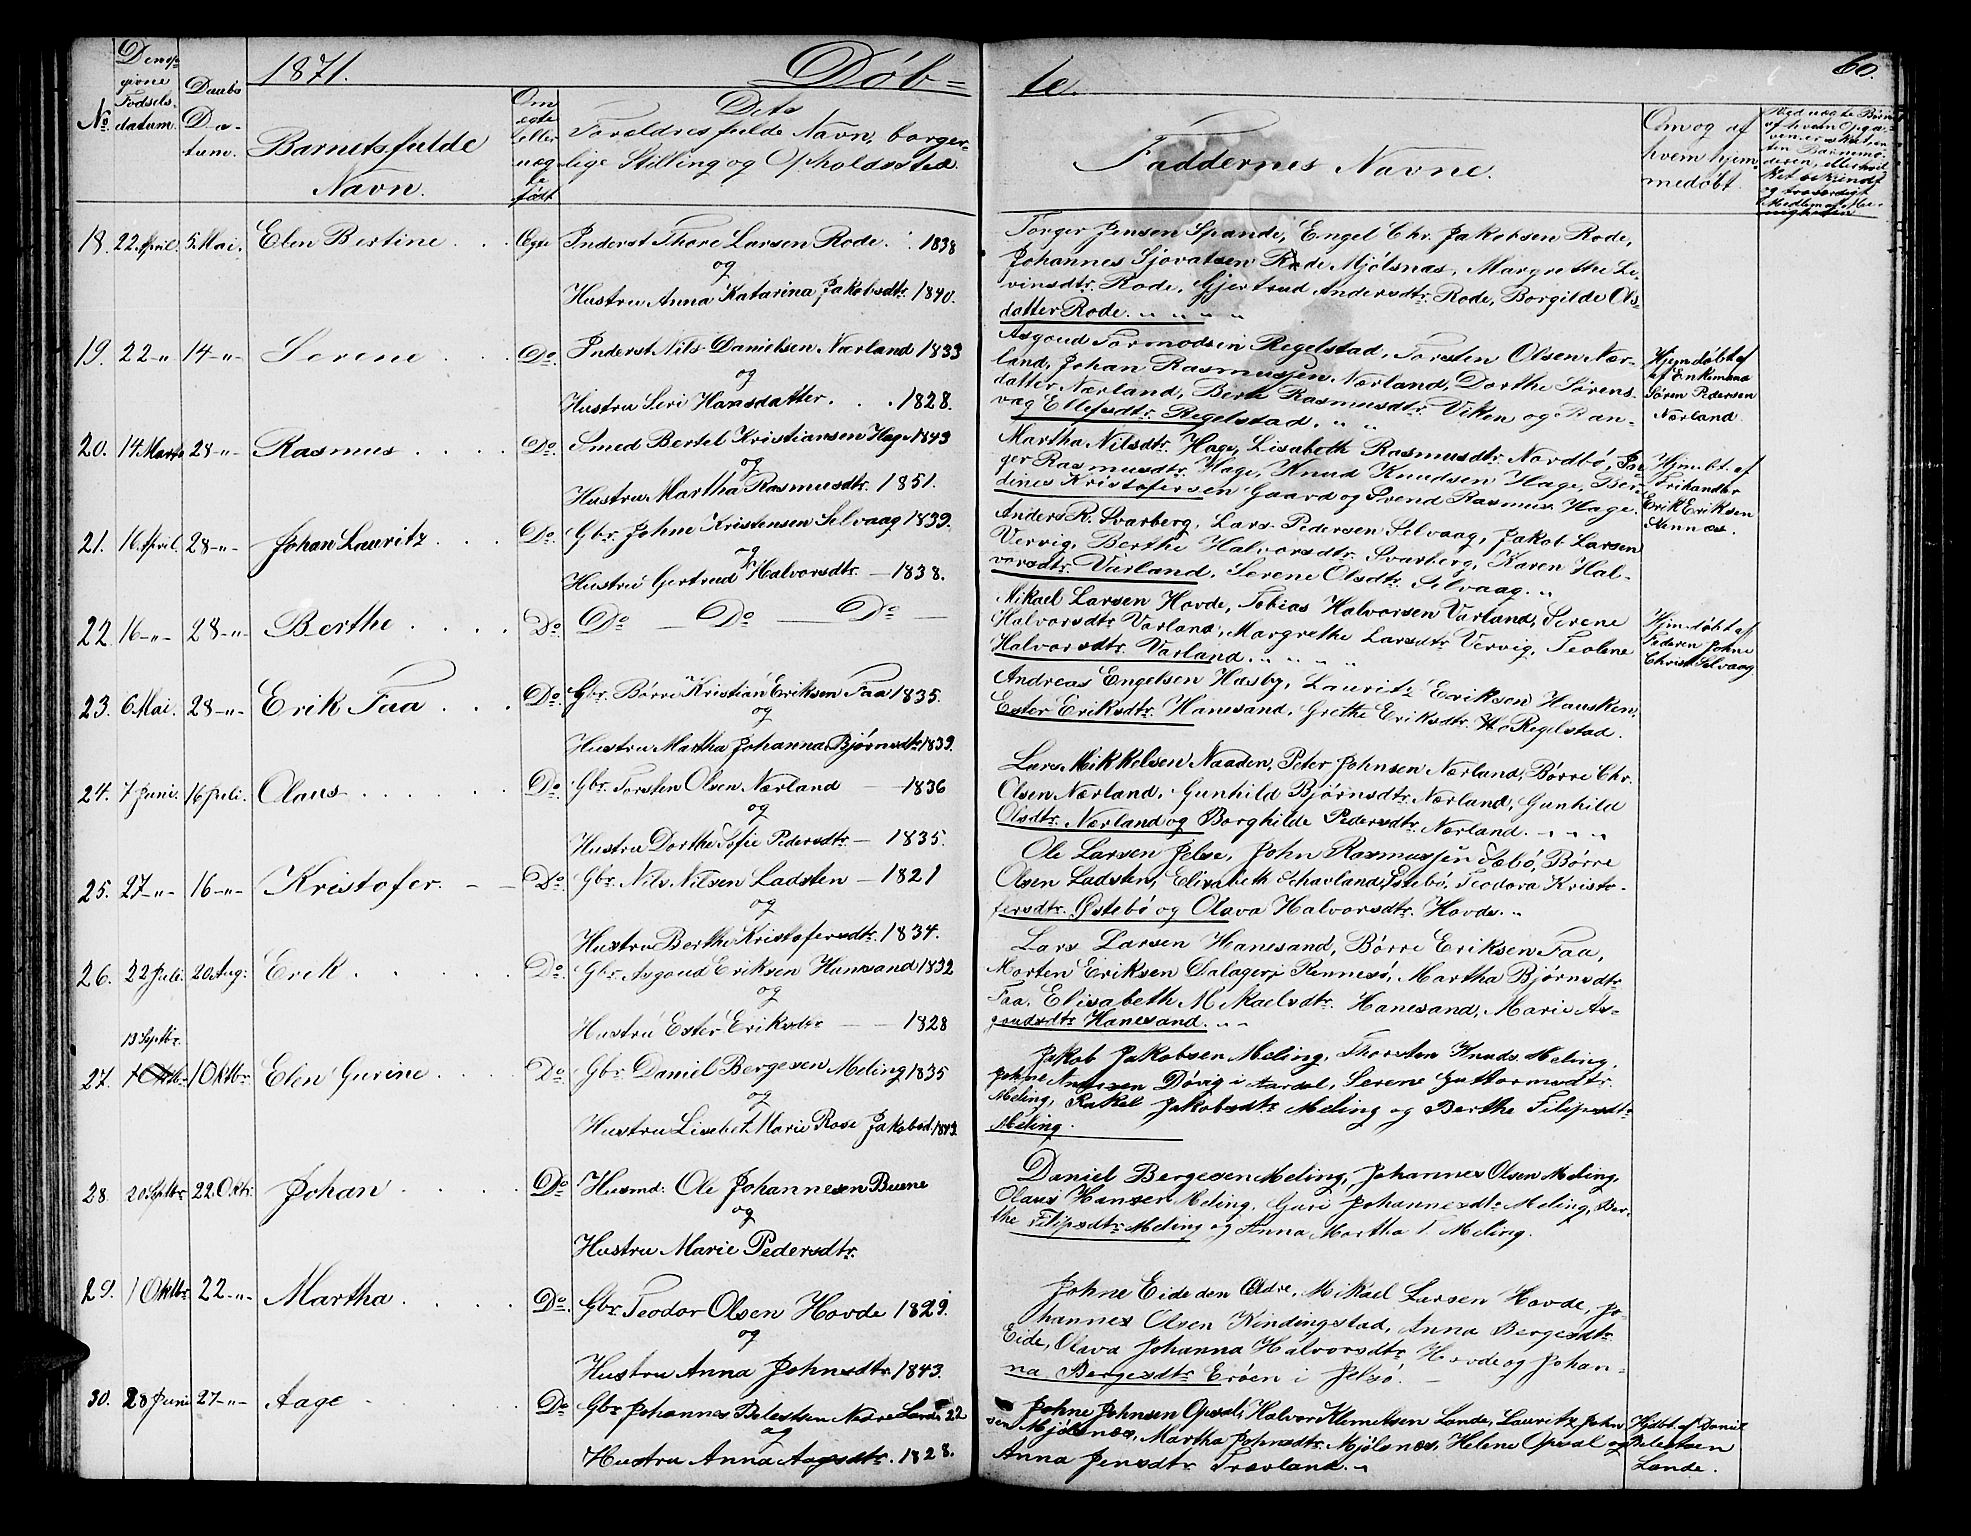 1871. Døb=
te. 60.
No
Den op-
givne
Fødsels-
datum.
Daabs
Da-
tum.
Barnets fulde
Navn.
Om
ægte
eller
uæg-
te
født
Dets
Forældres fulde Navn, borger-
lige Stilling og Opholdssted.
Faddernes Navne.
Om og af
hvem hjem-
medøbt.
18. 22 April. 5 Mai. Elen Bertine . . Ægte Inderst Thore Larsen Rode . 1838
og
Hustru Anna Katarina Jakobsdtr. 1840.
Torger Jensen Spande, Engel Chr. Jakobsen Rode,
Johannes Sjovatsen Rode Mjølsnæs, Margrethe Le-
vinsdtr. Rode, Gjertrud Andersdtr. Rode, Borgilde Ols-
datter Rode. " " " "
19. 22 -"- 14 -"- Serene . . . Do. Inderst Nils Danielsen Nærland 1833
og
Hustru Seri Hansdatter . . . 1828.
Asgoud Tormodsen Regelstad, Torsten Olsen Nær-
land, Johan Rasmussen Nærland, Dorthe Sørens-
datter Nærland, Berte Rasmusdtr. Viken og Ran-
vag Ellefsdtr. Regelstad. " "
Hjemdøbt af
af Enkemand
Søren Pedersen
Nærland.
20. 14 Marts 28 -"- Rasmus . . . . Do. Smed Bertel Kristiansen Hage 1843
og
Hustru Martha Rasmusdtr. 1851.
Martha Nilsdtr. Hage, Lisabeth Rasmusdtr. Nordbø, In-
ger Rasmusdtr. Hage, Knud Knudsen Hage, Ber-
dines Kristofersen Gaard og Svend Rasmus. Hage.
Hjm.bt. af
Erik Eriksen
21. 16 April. 28 -"- Johan Lauritz . . . Do. Gbr. Johne Kristensen Selvaag 1839.
og
Hustru Gertrud Halvorsdtr. — 1838.
Anders R. Svarberg, Lars Pedersen Selvaag, Jakob Larsen
Vervig, Berthe Halvorsdtr. Svarberg, Karen Hal-
vorsdtr. Varland, Serene Olsdtr. Selvaag. "
22. 16 -"- 28 -"- Berthe . . . . Do. Do — Do — Do —
Mikael Larsen Hovde, Tobias Halvorsen Varland, Serene
Halvorsdtr. Varland, Margrethe Larsdtr. Vervig, Teolene
Halvorsdtr. Varland. " " " "
Hjmdøbt af
Faderen Johne
Christ. Selvaag
23. 6 Mai. 28 -"- Erik Faa . . . Do. Gbr. Børre Kristian Eriksen Faa 1835.
og
Hustru Martha Johanna Bjørnsdtr. 1839.
Andreas Engelsen Hæsby, Lauritz Eriksen Hausken,
Ester Eriksdtr. Hanesand, Grethe Eriksdtr. Regelstad.
24. 7 Juni. 16 Juli. Olaus . . . . . . Do. Gbr. Torsten Olsen Nærland — 1836
og
Hustru Dorthe Sofie Pedersdtr. — 1835.
Lars Mikkelsen Naaden, Peter Johnsen Nærland, Børre Chr.
Olsen Nærland, Gunhild Bjørnsdtr. Nærland, Gunhild
Olsdtr. Nærland og Borghilde Pedersdtr. Nærland. " " "
25. 27 -"- 16 -"- Kristofer. — — Do. Gbr. Nils Nilsen Ladsten — 1821
og
Hustru Berthe Kristofersdtr. 1834.
Ole Larsen Jelse, John Rasmussen Sæbø, Børre
Olsen Ladsten, Elisabeth Østebø, Teodora Kristo-
fersdtr. Østebø og Olava Halvorsdtr. Hovde. "
26. 22 Juli. 20 Aug: Erek . . . . . Do. Gbr. Asgoud Eriksen Hanesand 1832
og
Hustru Ester Eriksdtr — — 1828
Lars Larsen Hanesand, Børre Eriksen Faa,
Morten Eriksen Dalager i Rennesø, Martha Bjørnsdtr.
Faa, Elisabeth Mikaelsdtr. Hanesand, Marie As-
goudsdtr Hanesand. " "
13 Septbr.
27. 1 Oktbr. 1 Oktbr. Elen Gurine . . . Do. Gbr. Daniel Bergesen Meling 1835
og
Hustru Lisebet Marie Rose Jakobsd. 1843.
Jakob Jakobsen Meling, Thorsten Knuds. Meling,
Johne Andersen Døvig i Aardal, Serene Guttormsdtr.
Meling, Rakel Jakobsdtr. Meling og Berthe Filipsdtr.
Meling.
28. 20 Septbr. 22. Oktr. Johan . . . . Do. Husmd: Ole Johannesen Buene
og
Hustru Marie Pedersdtr.
Daniel Bergesen Meling, Johannes Olsen Meling,
Olaus Hansen Meling, Guri Johannesdtr. Meling, Ber-
the Filipsdtr. Meling og Anna Martha T. Meling.
29. 1 Oktbr. 22 -"- Martha . . . . Do. Gbr. Teodor Olsen Hovde 1829.
og
Hustru Anna Johnsdtr. 1843.
Johne Eide den Ældre, Mikael Larsen Hovde, Jo-
hannes Olsen Kindingstad, Anna Bergesdtr.
Eide, Olava Johanna Halvorsdtr. Hovde og Johan-
na Bergesdtr. Erøen i Jelsø. —
30. 28 Juni 27 -"- Aage . . . . . Do. Gbr. Johannes Belestsen Nedre Lande 22
og
Hustru Anna Aagesdtr. 1828.
Johne Johnsen Opsal, Halvor Klemetsen Lande, Lauritz John-
sen Mjølsnæs, Martha Johnsdtr. Mjølsnæs, Helene Opsal og
Anna Jensdtr. Træeland. "
Hjdbt. af Daniel
Belestsen
Lande.